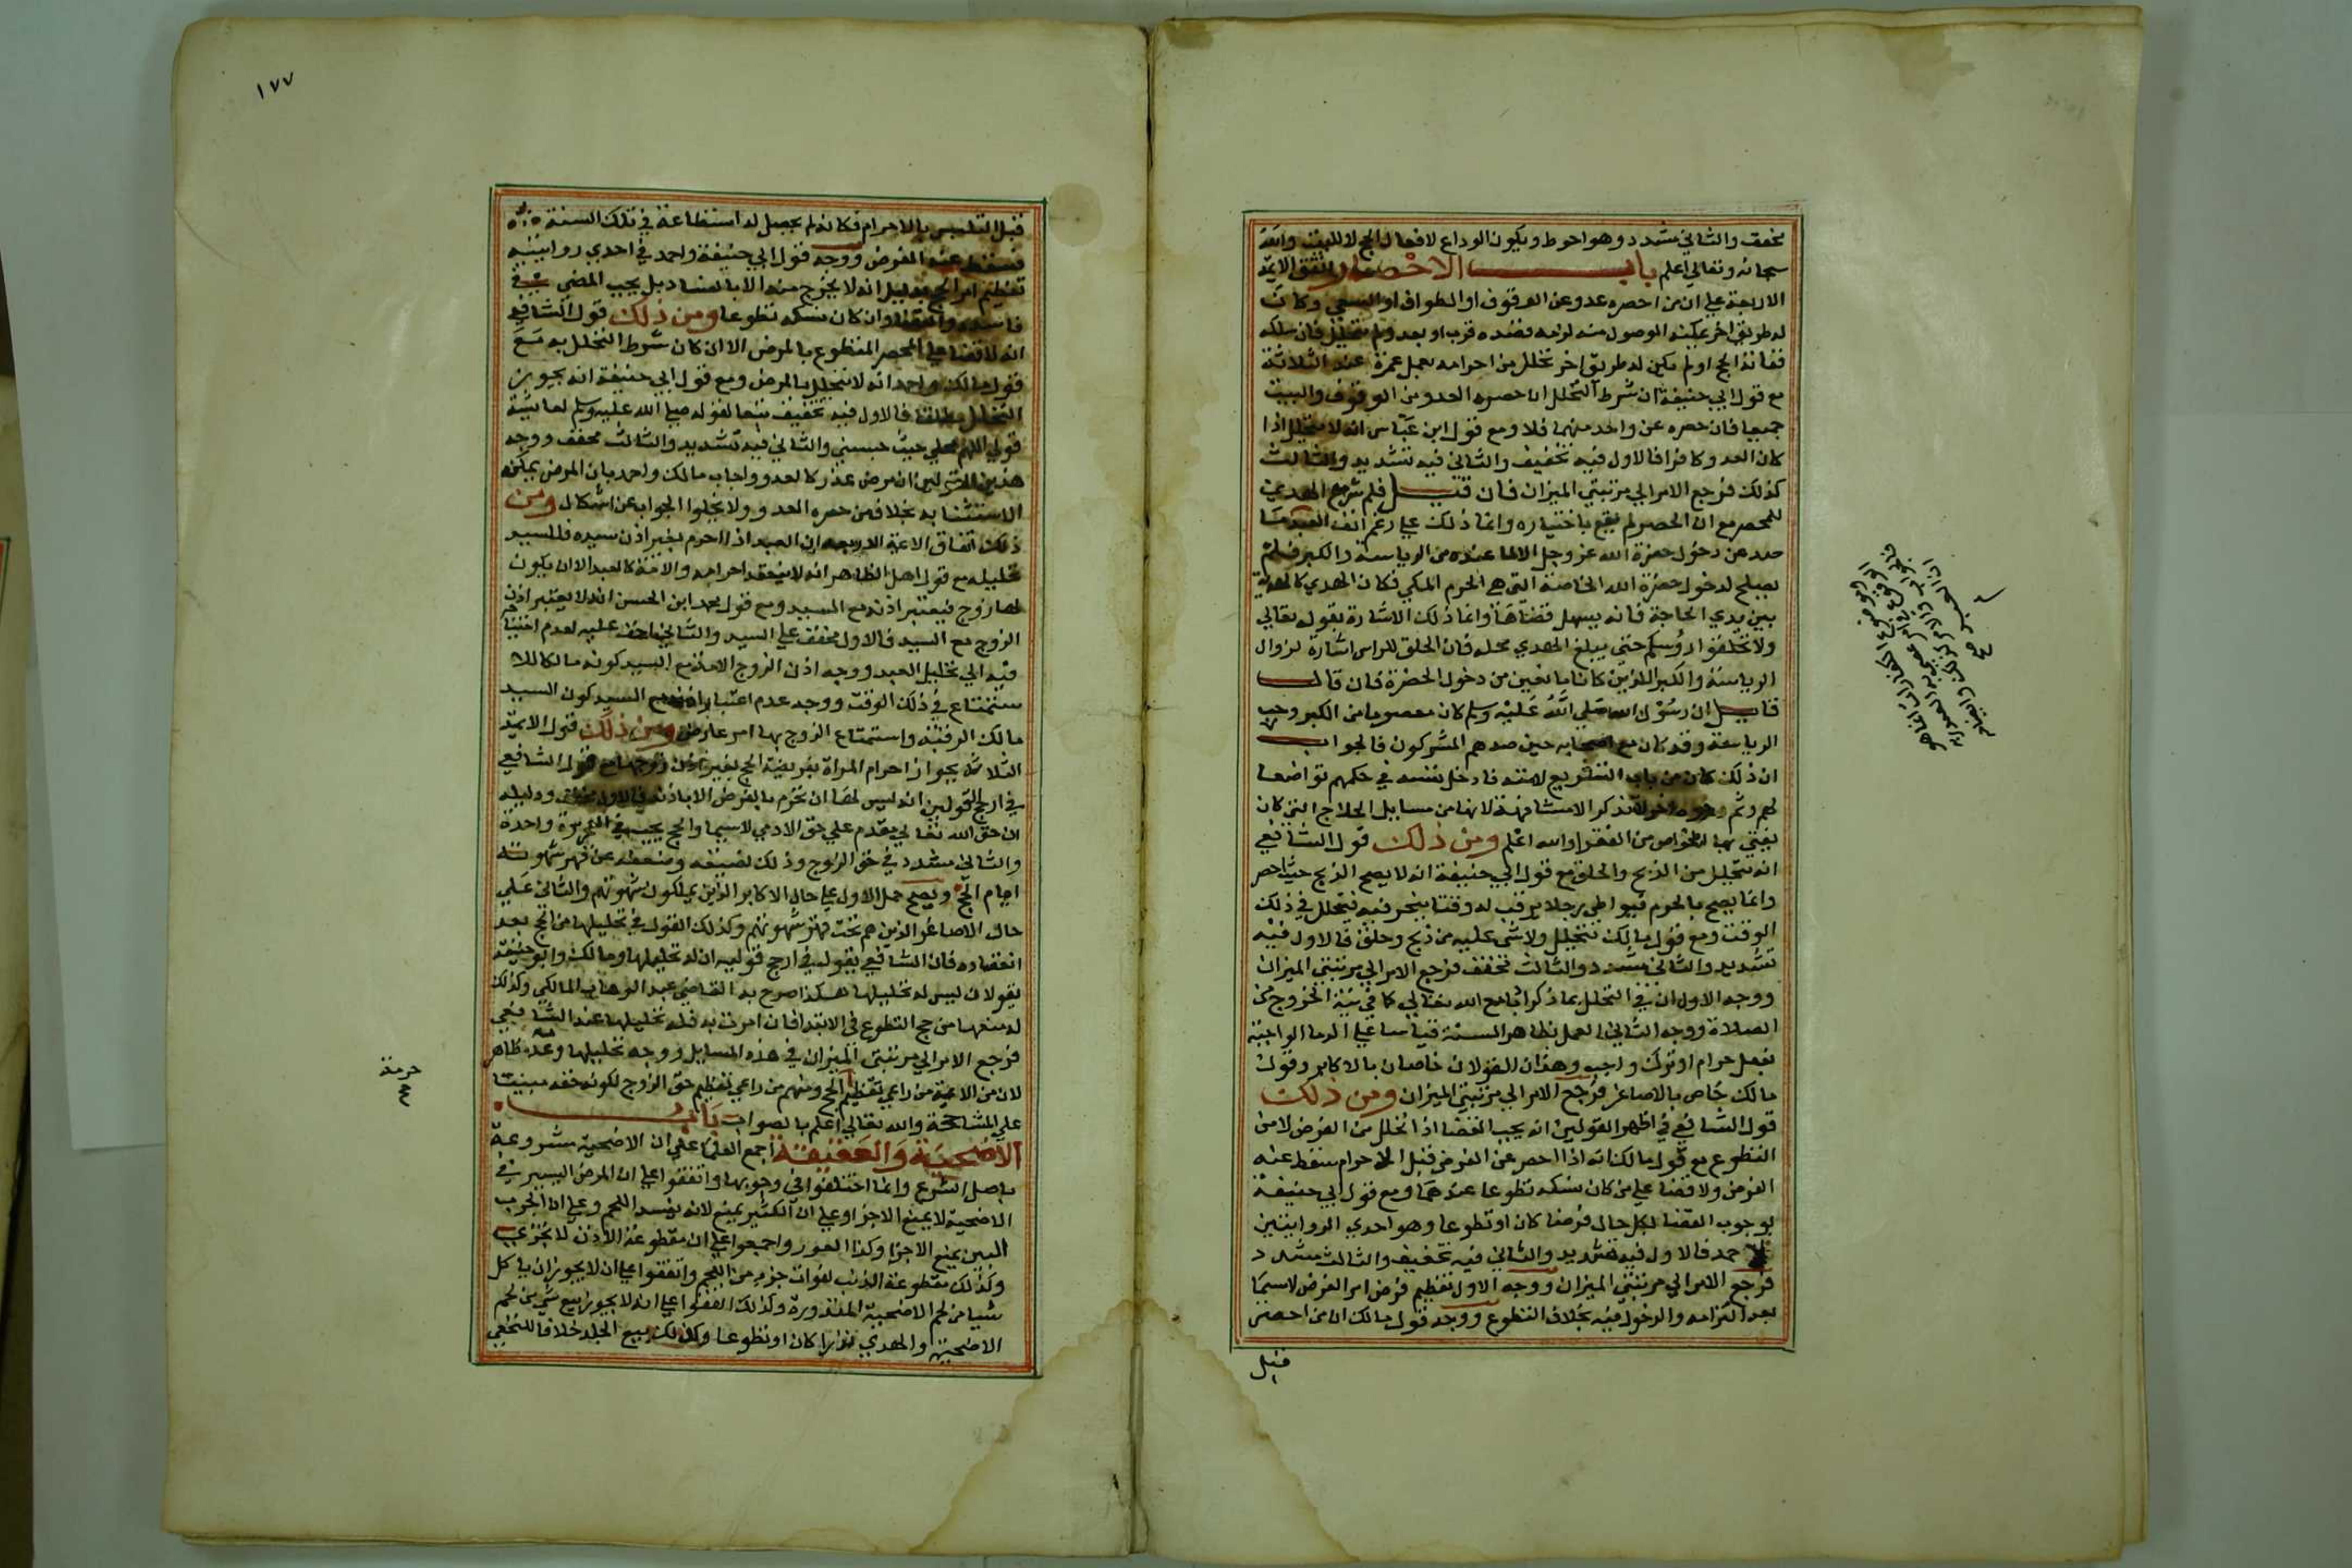 مخفف والثاني مشدد وهو احوط ويكون الوداع لافعال الحج لا للبيت والله
سبحانه وتعالى اعلم باب الاحصار اتفق الايمة
الاربعة علي ان من احصره عدو عن الوقوف او الطواف او السعي وكان
له طريق اخر يمكنه الوصول منه لزمه قصده قرب او بعد ولم يتحلل فان سلكه
ففاته الحج او لم يكن له طريق اخر تحلل من احرامه بعمل عمرة عند الثلاثة
مع قول ابي حنيفة ان شرط التحلل ان حصره العدو عن الوقوف والبيت
جميعا فان حصره عن واحد منهما فلا ومع قول ابن عباس انه لا يتحلل اذا
كان العدو كافرا فالاول فيه تخفيف والثاني فيه تشديد والثالث
كذلك فرجع الامر الي مرتبتي الميزان فان قيل فلم شرع الهدي
للمحصر مع ان الحصر لم يقع باختياره وانما ذلك علي رغم انف العبد
صد عن دخول حضرة الله عز وجل الا لما عنده من الرياسة والكبر فلم
يصلح لدخول حضرة الله الخاصة التي هي الحرم المكي فكان الهدي كالهدية
بين يدي الحاجة فانه يسهل قضاها وانما ذلك الاشارة بقوله تعالي
ولا تحلقوا رؤسكم حتي يبلغ الهدي محله فان الحلق للراس اشارة لزوال
الرياسة والكبر اللذين كانا مانعين من دخول الحضرة فان قال
قايل ان رسول الله صلي الله عليه وسلم كان معصوما من الكبر وحب
الرياسة وقد كان مع اصحابه حين صدهم المشركون فالجواب
ان ذلك كان من باب التشريع لامته فادخل نفسه في حكمهم تواضعا
لهم وثم وجوه اخر لا تذكر الا مشافهة لانها من مسايل الحلاج التي كان
يفتي بها الخواص من الفقرا والله اعلم ومن ذلك قول الشافعي
انه يتحلل من الذبح والحلق مع قول ابي حنيفة انه لا يصح الذبح حيث احصر
وانما يصح بالحرم فيواطي رجلا يرقب له وقتا ينحر فيه فيتحلل في ذلك
الوقت ومع قول مالك يتحلل ولا شي عليه من ذبح وحلق فالاول فيه
تشديد والثاني مشدد والثالث مخفف فرجع الامر الي مرتبتي الميزان
ووجه الاول ان في التحلل بما ذكر
الصلاة ووجه الثاني العمل بظاهر السنة قياسا علي الدما الواجبة
بفعل حرام او ترك واجب وهذان القولان خاصان بالاكابر وقول
مالك خاص بالاصاغر فرجع الامر الي مرتبتي الميزان ومن ذلك
قول الشافعي في اظهر القولين انه يجب القضا اذا تحلل من الفرض لا من
التطوع مع قول مالك انه اذا احصر عن الفرض قبل الاحرام سقط عنه
الفرض ولا قضا علي من كان نسكه تطوعا عندهما ومع قول ابي حنيفة
بوجوب القضا بكل حال فرضا كان او تطوعا وهو احدي الروايتين
لاحمد فالاول فيه تشديد والثاني فيه تخفيف والثالث مشدد
فرجع الامر الي مرتبتي الميزان ووجه الاول تعظيم فرض امر الفرض لا سيما
بعد التزامه والدخول فيه بخلاف التطوع ووجه قول مالك ان من احصر
قبل
١٧٧
قبل التلبس بالاحرام فكانه لم يحصل له استطاعة في تلك السنة
فسقط عنه الفرض ووجه قول ابي حنيفة واحمد في احدي روايتيه
تعظيم امر الحج بدليل انه لا يخرج منه الا بالفساد بل يجب المضي في
فاسده والقضا وان كان نسكه تطوعا ومن ذلك قول الشافعي
انه لا قضا علي المحصر المتطوع بالمرض الا ان كان شرط التحلل به مع
قول مالك واحمد انه لا يتحلل بالمرض ومع قول ابي حنيفة انه يجوز
التحلل مطلقا فالاول فيه تخفيف تبعا لقوله صلي الله عليه وسلم لعايشة
قولي اللهم محلي حيث حبستني والثاني فيه تشديد والثالث مخفف ووجه
هذين القولين ان مرض عذر كالعدو واجاب مالك واحمد بان المرض يمكن
الاستثنا به بخلاف من حصره العدو ولا يخلوا الجواب عن اشكال ومن
ذلك اتفاق الايمة الاربعة ان العبد اذا احرم بغير اذن سيده فللسيد
تحليله مع قول اهل الظاهر انه لا ينعقد احرامه والامة كالعبد الا ان يكون
لها زوج فيعتبر اذنه مع السيد ومع قول محمد ابن الحسن انه لا يعتبر اذن
الزوج مع السيد فالاول مخفف علي السيد والثاني اخف عليه لعدم
فيه الي تحليل العبد ووجه اذن الزوج الامة مع السيد كونه مالكا للا
ستمتاع في ذلك الوقت ووجه عدم اعتبار اذنه مع السيد كون السيد
مالك الرقبة واستمتاع الزوج بها امر عارض ومن ذلك قول الايمة
الثلاثة بجواز احرام المراة بفريضة الحج بغير اذن زوجها مع قول الشافعي
في ارجح القولين انه ليس لها ان تحرم بالفرض الا باذنه فالاول مخفف ودليله
ان حق الله تعالي مقدم علي حق الادمي لا سيما والحج يجب في العمر مرة واحدة
والثاني مشدد في حق الزوج وذلك لضيقه وضعفه عن قهر شهوته
ايام الحج ويصح حمل الاول علي حال الاكابر الذين يملكون شهوتهم والثاني علي
حال الاصاغر الذين هم تحت قهر شهوتهم وكذلك القول في تحليلها من الحج بعد
انعقاده فان الشافعي يقول في ارجح قوليه ان له تحليلها ومالك وابو حنيفة
يقولان ليس له تحليلها هكذا صرح به القاضي عبد الوهاب المالكي وكذلك
له منعها من حج التطوع في الابتدا فان احرمت به فله تحليلها عند الشافعي
فرجع الامر الي مرتبتي الميزان في هذه المسايل ووجه تحليلها وعدمه ظاهر
لان من الايمة من راعي تعظيم الحج ومنهم من راعي تعظيم حق الزوج لكونه حقه مبنيا
علي المشاححة والله تعالي اعلم بالصواب باب
الاضحية والعقيقة اجمع العلما علي ان الاضحية مشروعة
باصل الشرع وانما اختلفوا في وجوبها واتفقوا علي ان المرض اليسير في
الاضحية لا يمنع الاجزا وعلي ان الكثير يمنع لانه يفسد اللحم وعلي ان الجرب
البين يمنع الاجزا وكذا العور واجمعوا علي ان مقطوعة الاذن لا تجزي
وكذلك مقطوعة الذنب لفوات جزء من اللحم واتفقوا علي ان لا يجوز ان ياكل
شيا من لحم الاضحية المنذورة وكذلك اتفقوا علي انه لا يجوز بيع شي من لحم
الاضحية والهدي نذرا كان او تطوعا وكذلك بيع الجلد خلافا للنخعي